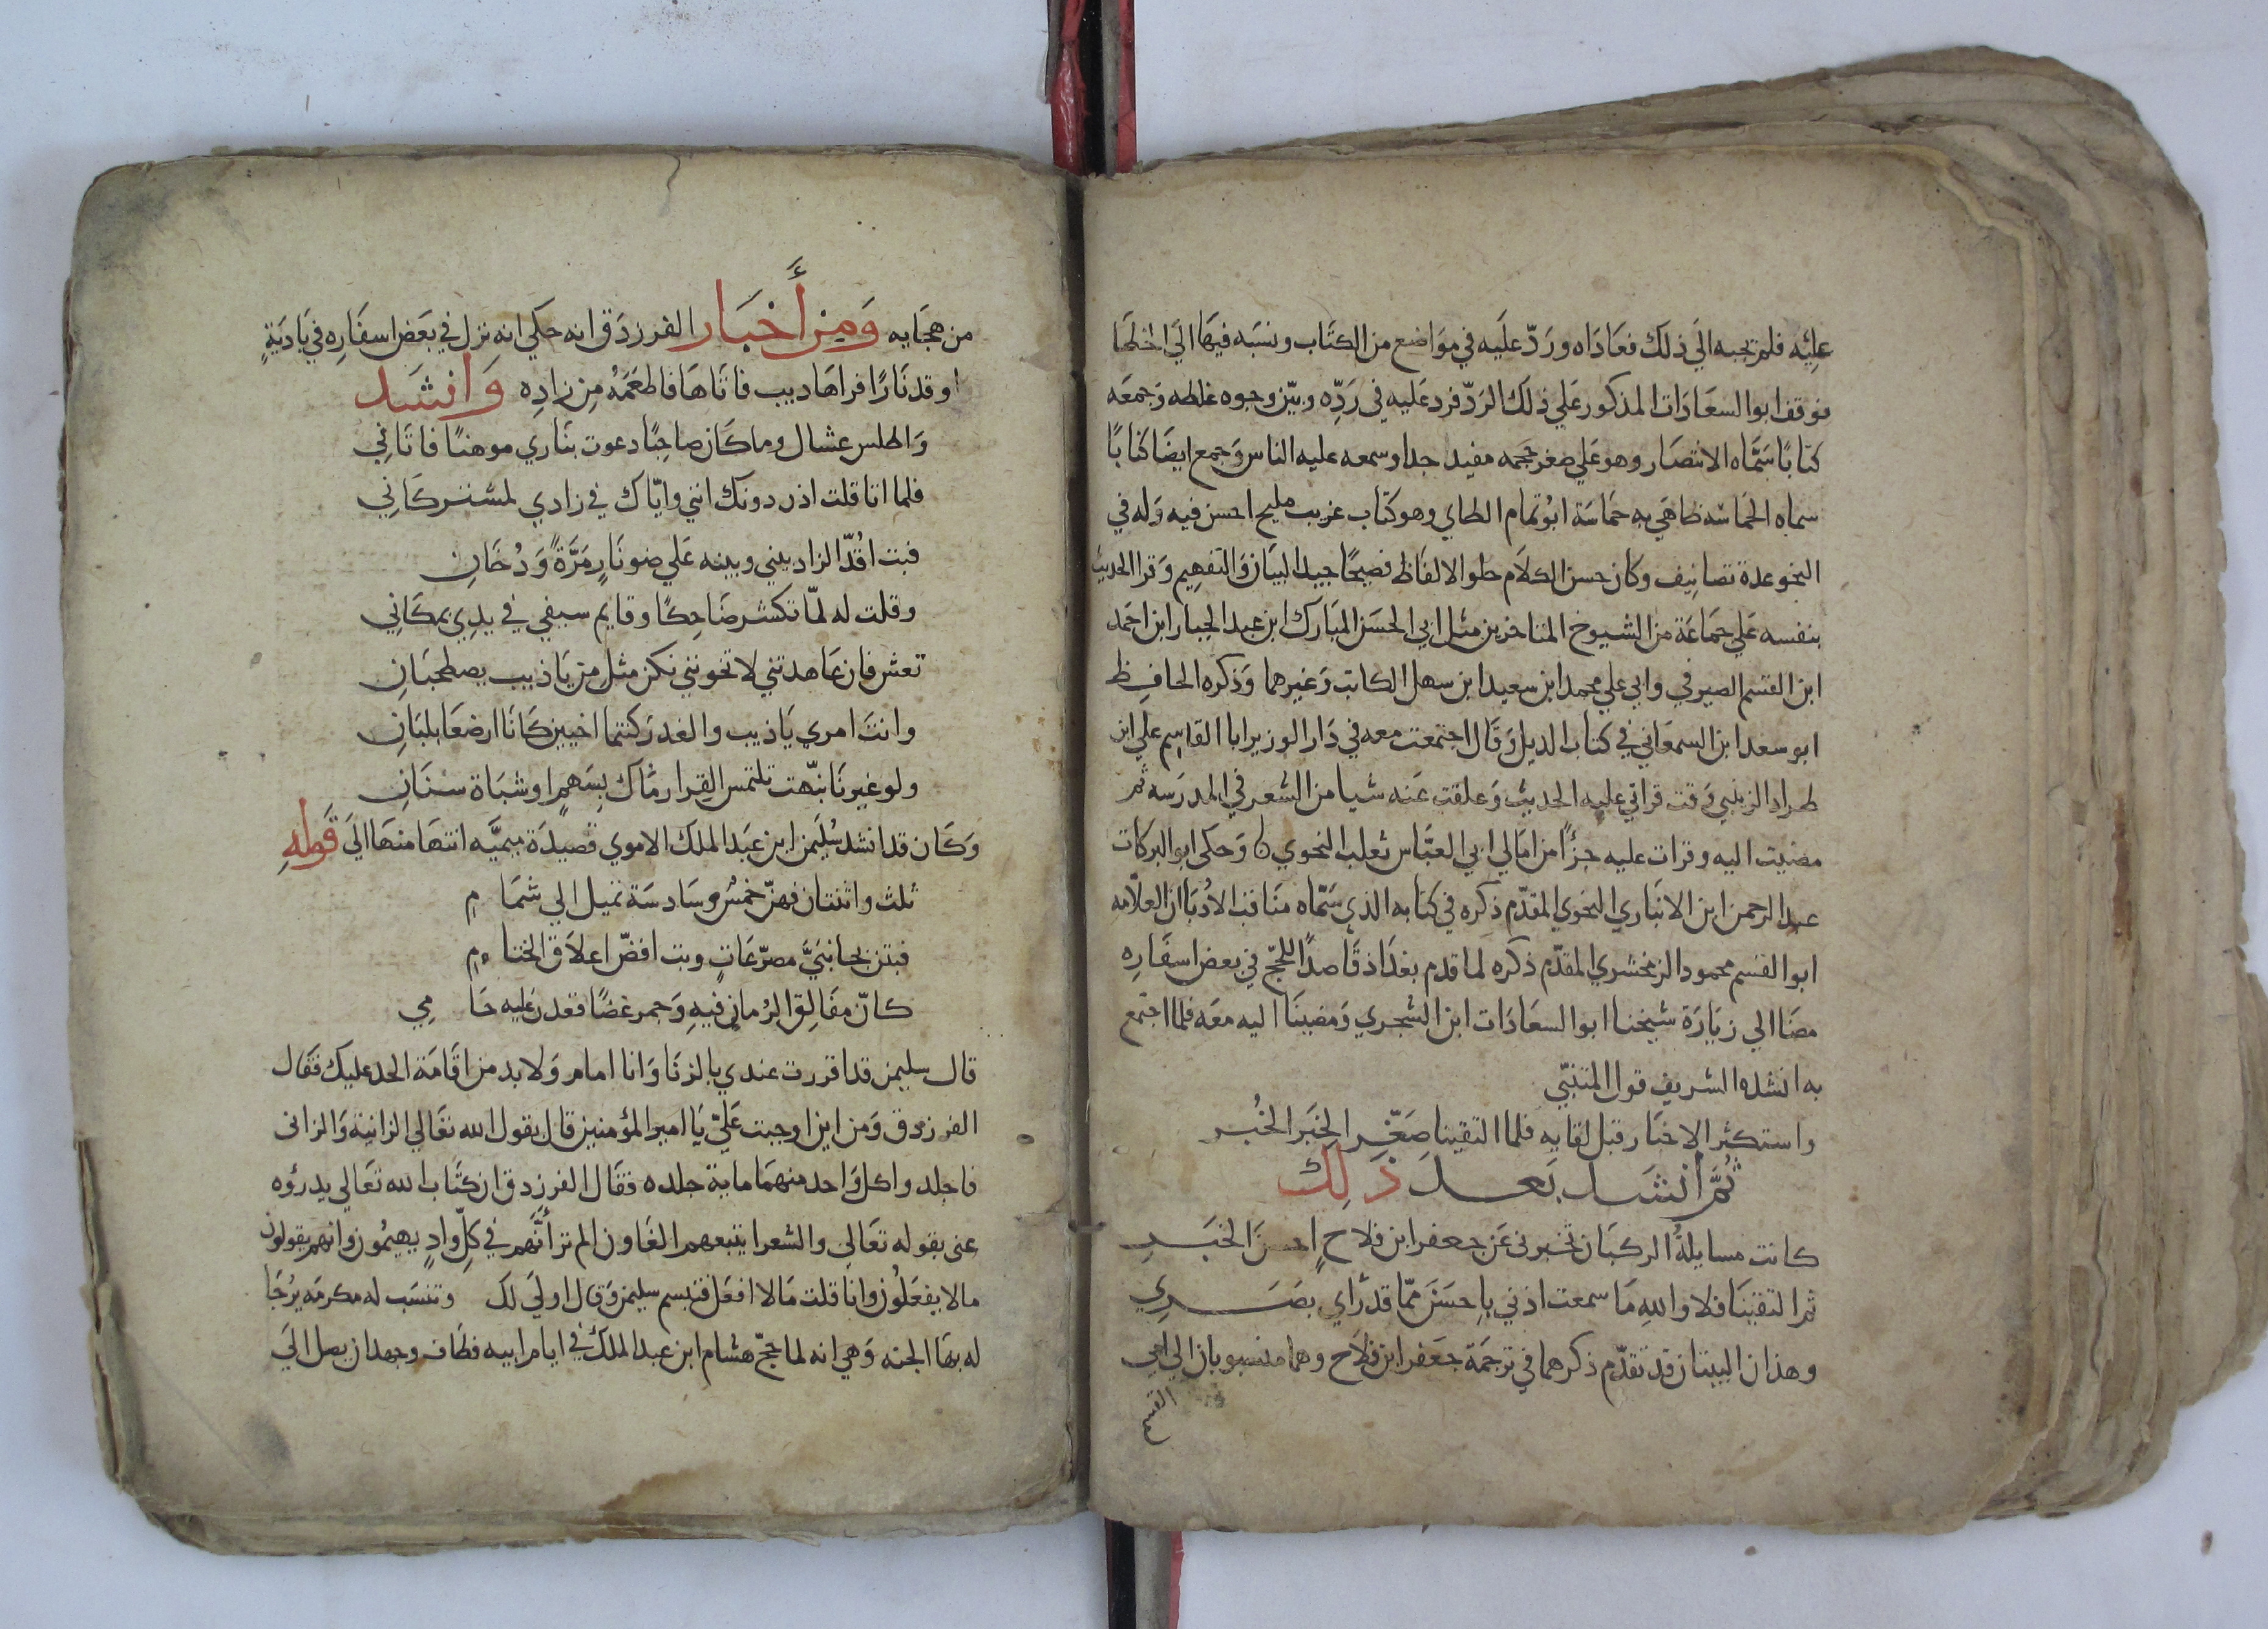 عليه فلم يجبه الي ذلك فعاداه ورد عليه في مواضع من الكتاب ونسبه فيها الي الخطا
فوقف ابو السعادات المذكور علي ذلك الرد فرد عليه في رده وبين وجوه غلطه وجمعه
كتابا سماه الانتصار وهو علي صغر حجمه مفيد جدا وسمعه عليه الناس وجمع ايضا كتابا
سماه الحماسه ضاهي به حماسة ابو تمام الطاي وهو كتاب غريب مليح احسن فيه وله في
النحو عدة تصانيف وكان حسن الكلام حلو الالفاظ فصيحا جيد البيان والتفهيم وقرا الحديث
بنفسه علي جماعة من الشيوخ المتاخرين مثل ابي الحسن المبارك ابن عبد الجبار ابن احمد
ابن القسم الصيرفي وابي علي محمد ابن سعيد ابن سهل الكاتب وغيرهما وذكره الحافظ
ابو سعد ابن السمعاني في كتاب الديل وقال اجتمعت معه في دار الوزير ابا القاسم علي ابن
طراد الزينبي وقت قراتي عليه الحديث وعلقت عنه شيا من الشعر في المدرسه ثم
مضيت اليه وقرات عليه جزأ من امالي ابي العباس ثعلب النحوي وحكي ابو البركات
عبد الرحمن ابن الانباري النحوي المقدم ذكره في كتابه الذي سماه مناقب الادبا ان العلامه
ابو القسم محمود الزمخشري المقدم ذكره لما قدم بغداذ قاصدا للحج في بعض اسفاره
مضا الي زيارة شيخنا ابو السعادات ابن الشجري ومضينا اليه معه فلما اجتمع
به انشده الشريف قول المتنبي
واستكثر الاخبار قبل لقايه فلما التقينا صغر الخبر الخبر
ثم انشد بعد ذلك
كانت مسايلة الركبان تخبرني عن جعفر ابن فلاح احسن الخبر
ثم التقينا فلا والله ما سمعت اذني باحسن مما قد راي بصري
وهذان البيتان قد تقدم ذكرهما في ترجمة جعفر ابن فلاح وهما منسوبان الي ابي
القسم
من هجايه ومن أخبار الفرزدق انه حكي انه نزل في بعض اسفاره في بادية
اوقد نارا فراها ديب فاتاها فاطعمه من زاده وانشد
واطلس عشال وما كان صاحبا دعوت بناري موهنا فاتاني
فلما اتا قلت اذن دونك انني واياك في زادي لمشتركاني
فبت اقد الزاد بيني وبينه علي ضو نار مرة ودخان
وقلت له لما تكشر ضاحكا وقايم سيفي في يدي بمكاني
تعش فان عاهدتني لا تخونني نكن مثل من ياذيب يصطحبان
وانت امري ياذيب والغدر كنتما اخيين كانا ارضعا بلبان
ولو غيرنا نبهت تلتمس القرا رماك بسهم او شباة سنان
وكان قد انشد سليمن ابن عبد الملك الاموي قصيدة ميميه انتها منها الي قوله
ثلث واثنتان فهن خمس وسادسة تميل الي شمام
فبتن بجانبي مصرعات وبت افض اعلاق الختام
كان مفالق الرمان فيه وجمر غضا قعدن عليه حامي
قال سليمن قد اقررت عندي بالزنا وانا امام ولا بد من اقامة الحد عليك فقال
الفرزدق ومن اين اوجبت علي يا امير المؤمنين قال بقول الله تعالي الزانية والزاني
فاجلدوا كل واحد منهما ماية جلده فقال الفرزدق ان كتاب الله تعالي يدرؤه
عني بقوله تعالي والشعرا يتبعهم الغاون الم تر أنهم في كل واد يهيمون وانهم يقولون
مالا يفعلون وانا قلت مالا افعل فتبسم سليمن وقال اولي لك وتنسب له مكرمه يرجا
له بها الجنه وهي انه لما حج هشام ابن عبد الملك في ايام ابيه فطاف وجهد ان يصل الي